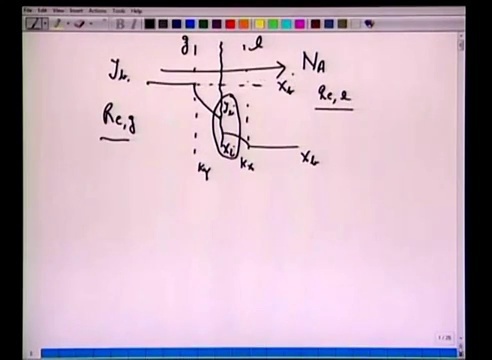 File Edit View Insert Actions Tools Help
g l
y_b N_A
x_b
Re,g Re,l
y_i
x_i
x_b
k_y k_x